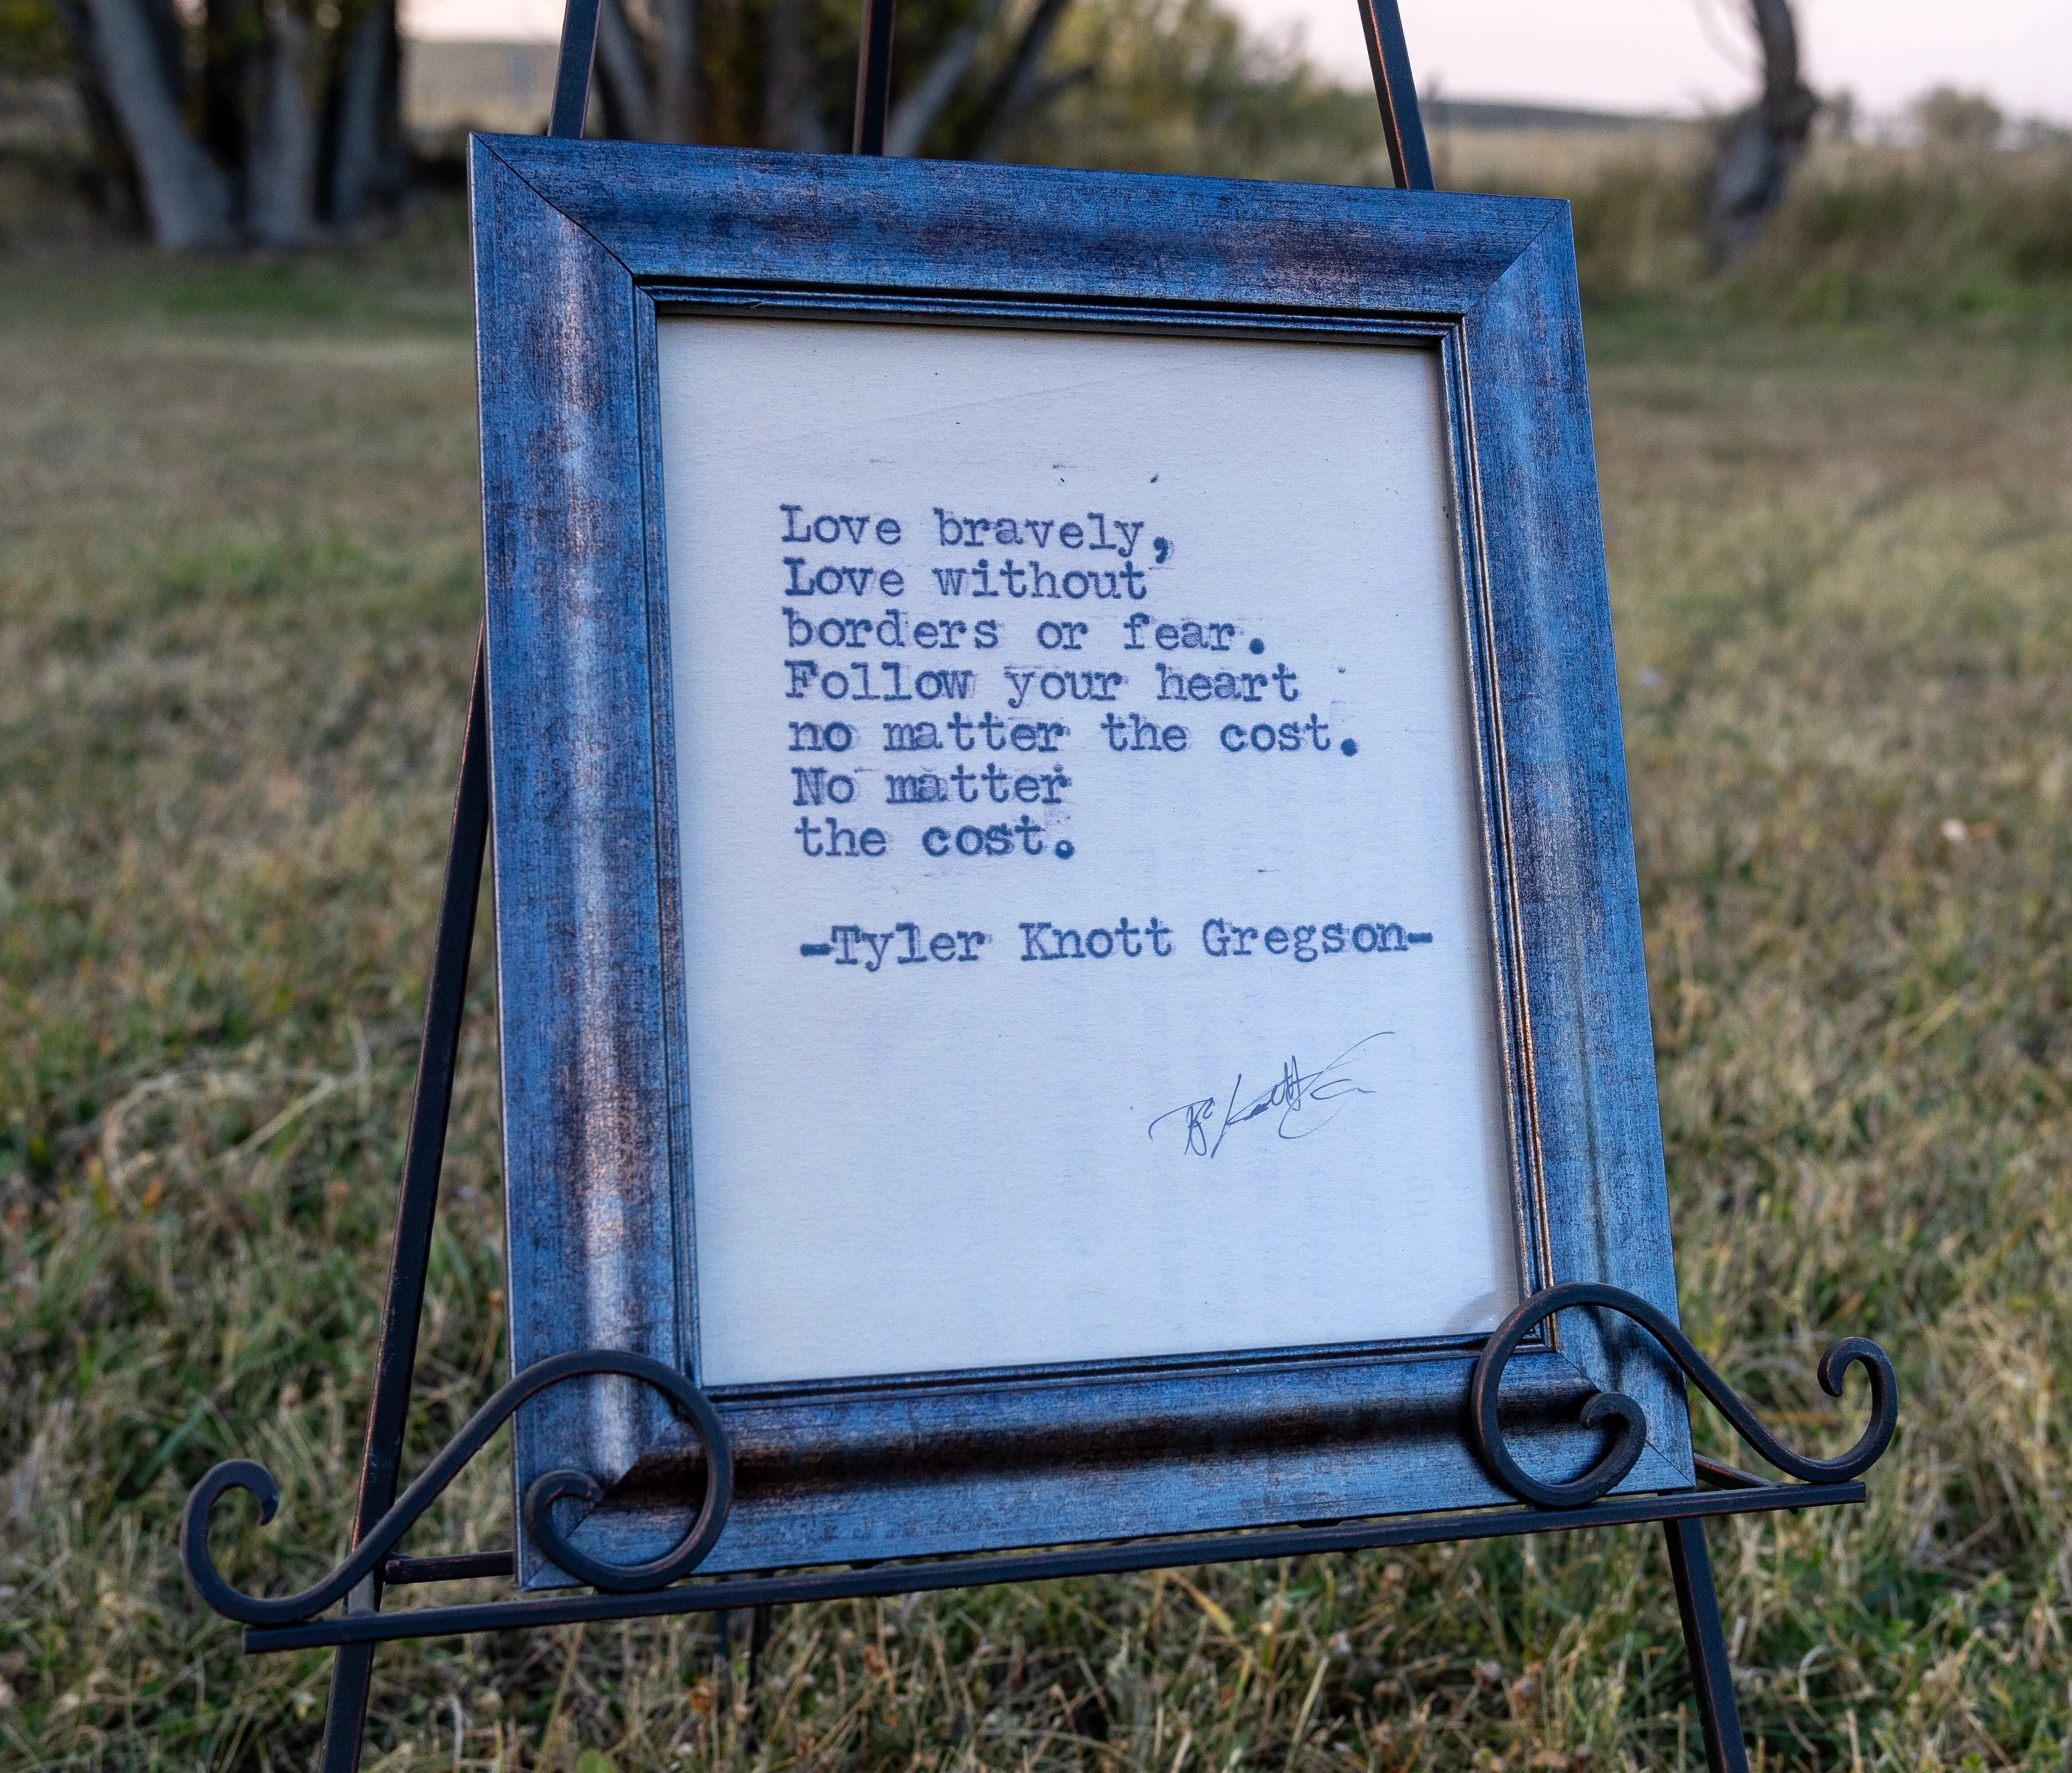 Love bravely,
Love without
borders or fear.
Follow your heart
no matter the cost.
No matter
the cost.
-Tyler Knott Gregson-